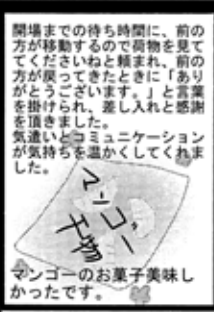 開場までの待ち時間に、前の
方が移動するので荷物を見て
てくださいねと頼まれ、前の
方が戻ってきたときに「あり
がとうございます。」と言葉
を掛けられ、差し入れと感謝
を頂きました。
気遣いとコミュニケーション
が気持ちを温かくしてくれま
した。
マンゴー
干物
マンゴーのお菓子美味し
かったです。